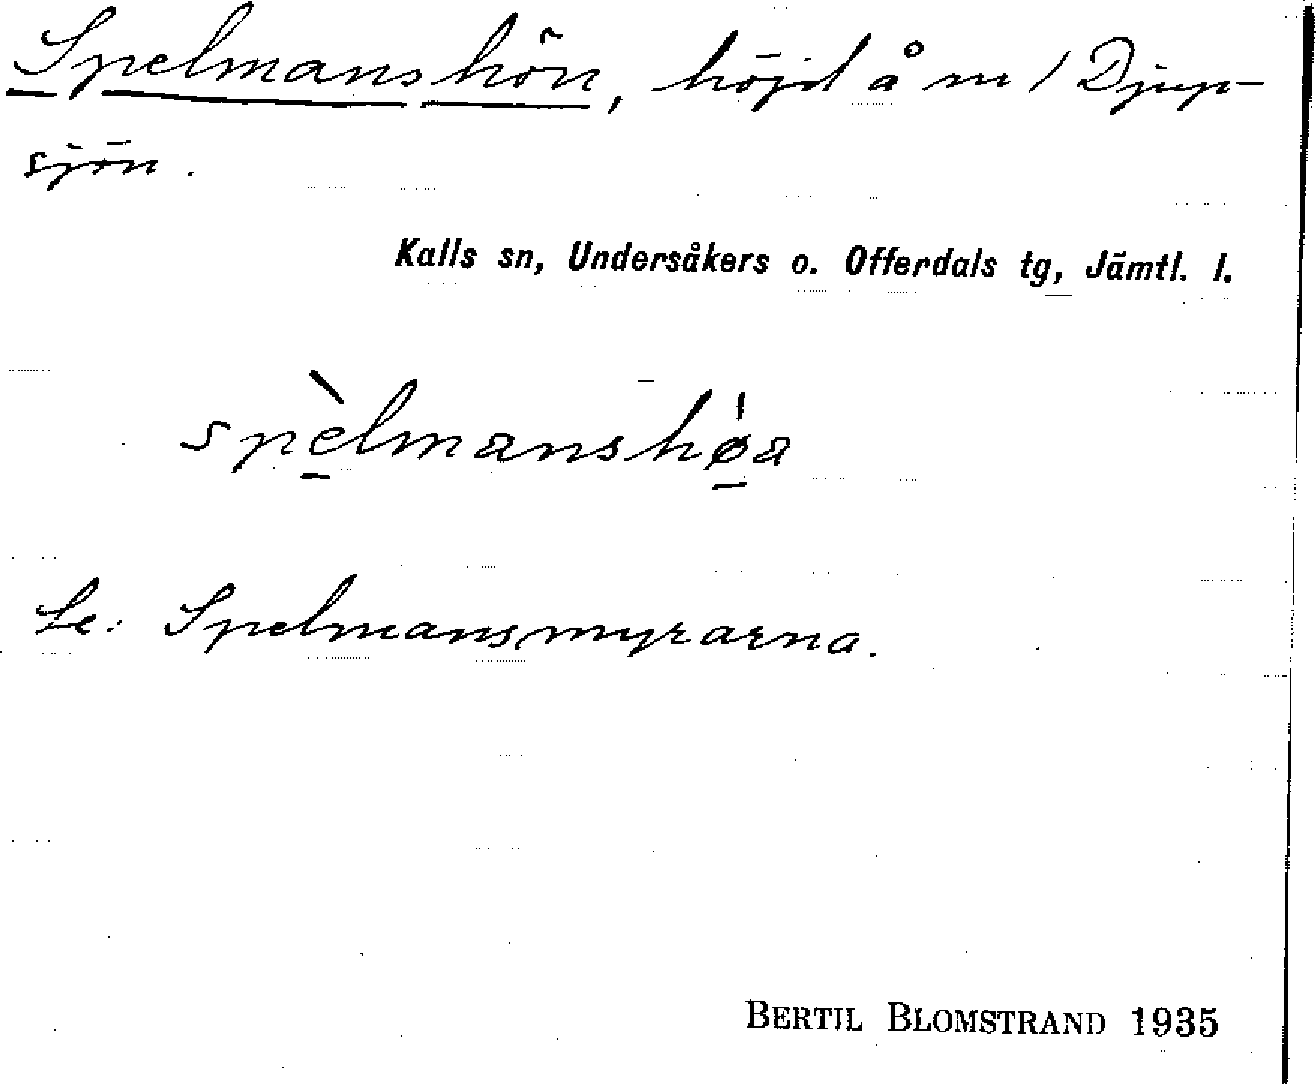 Spelmanshön, höjd å m / Djup-
sjön.
Kalls sn, Undersåkers o. Offerdals tg, Jämtl. l.
spèlmanshø̍a
Se: Spelmansmyrarna.
BERTIL BLOMSTRAND 1935